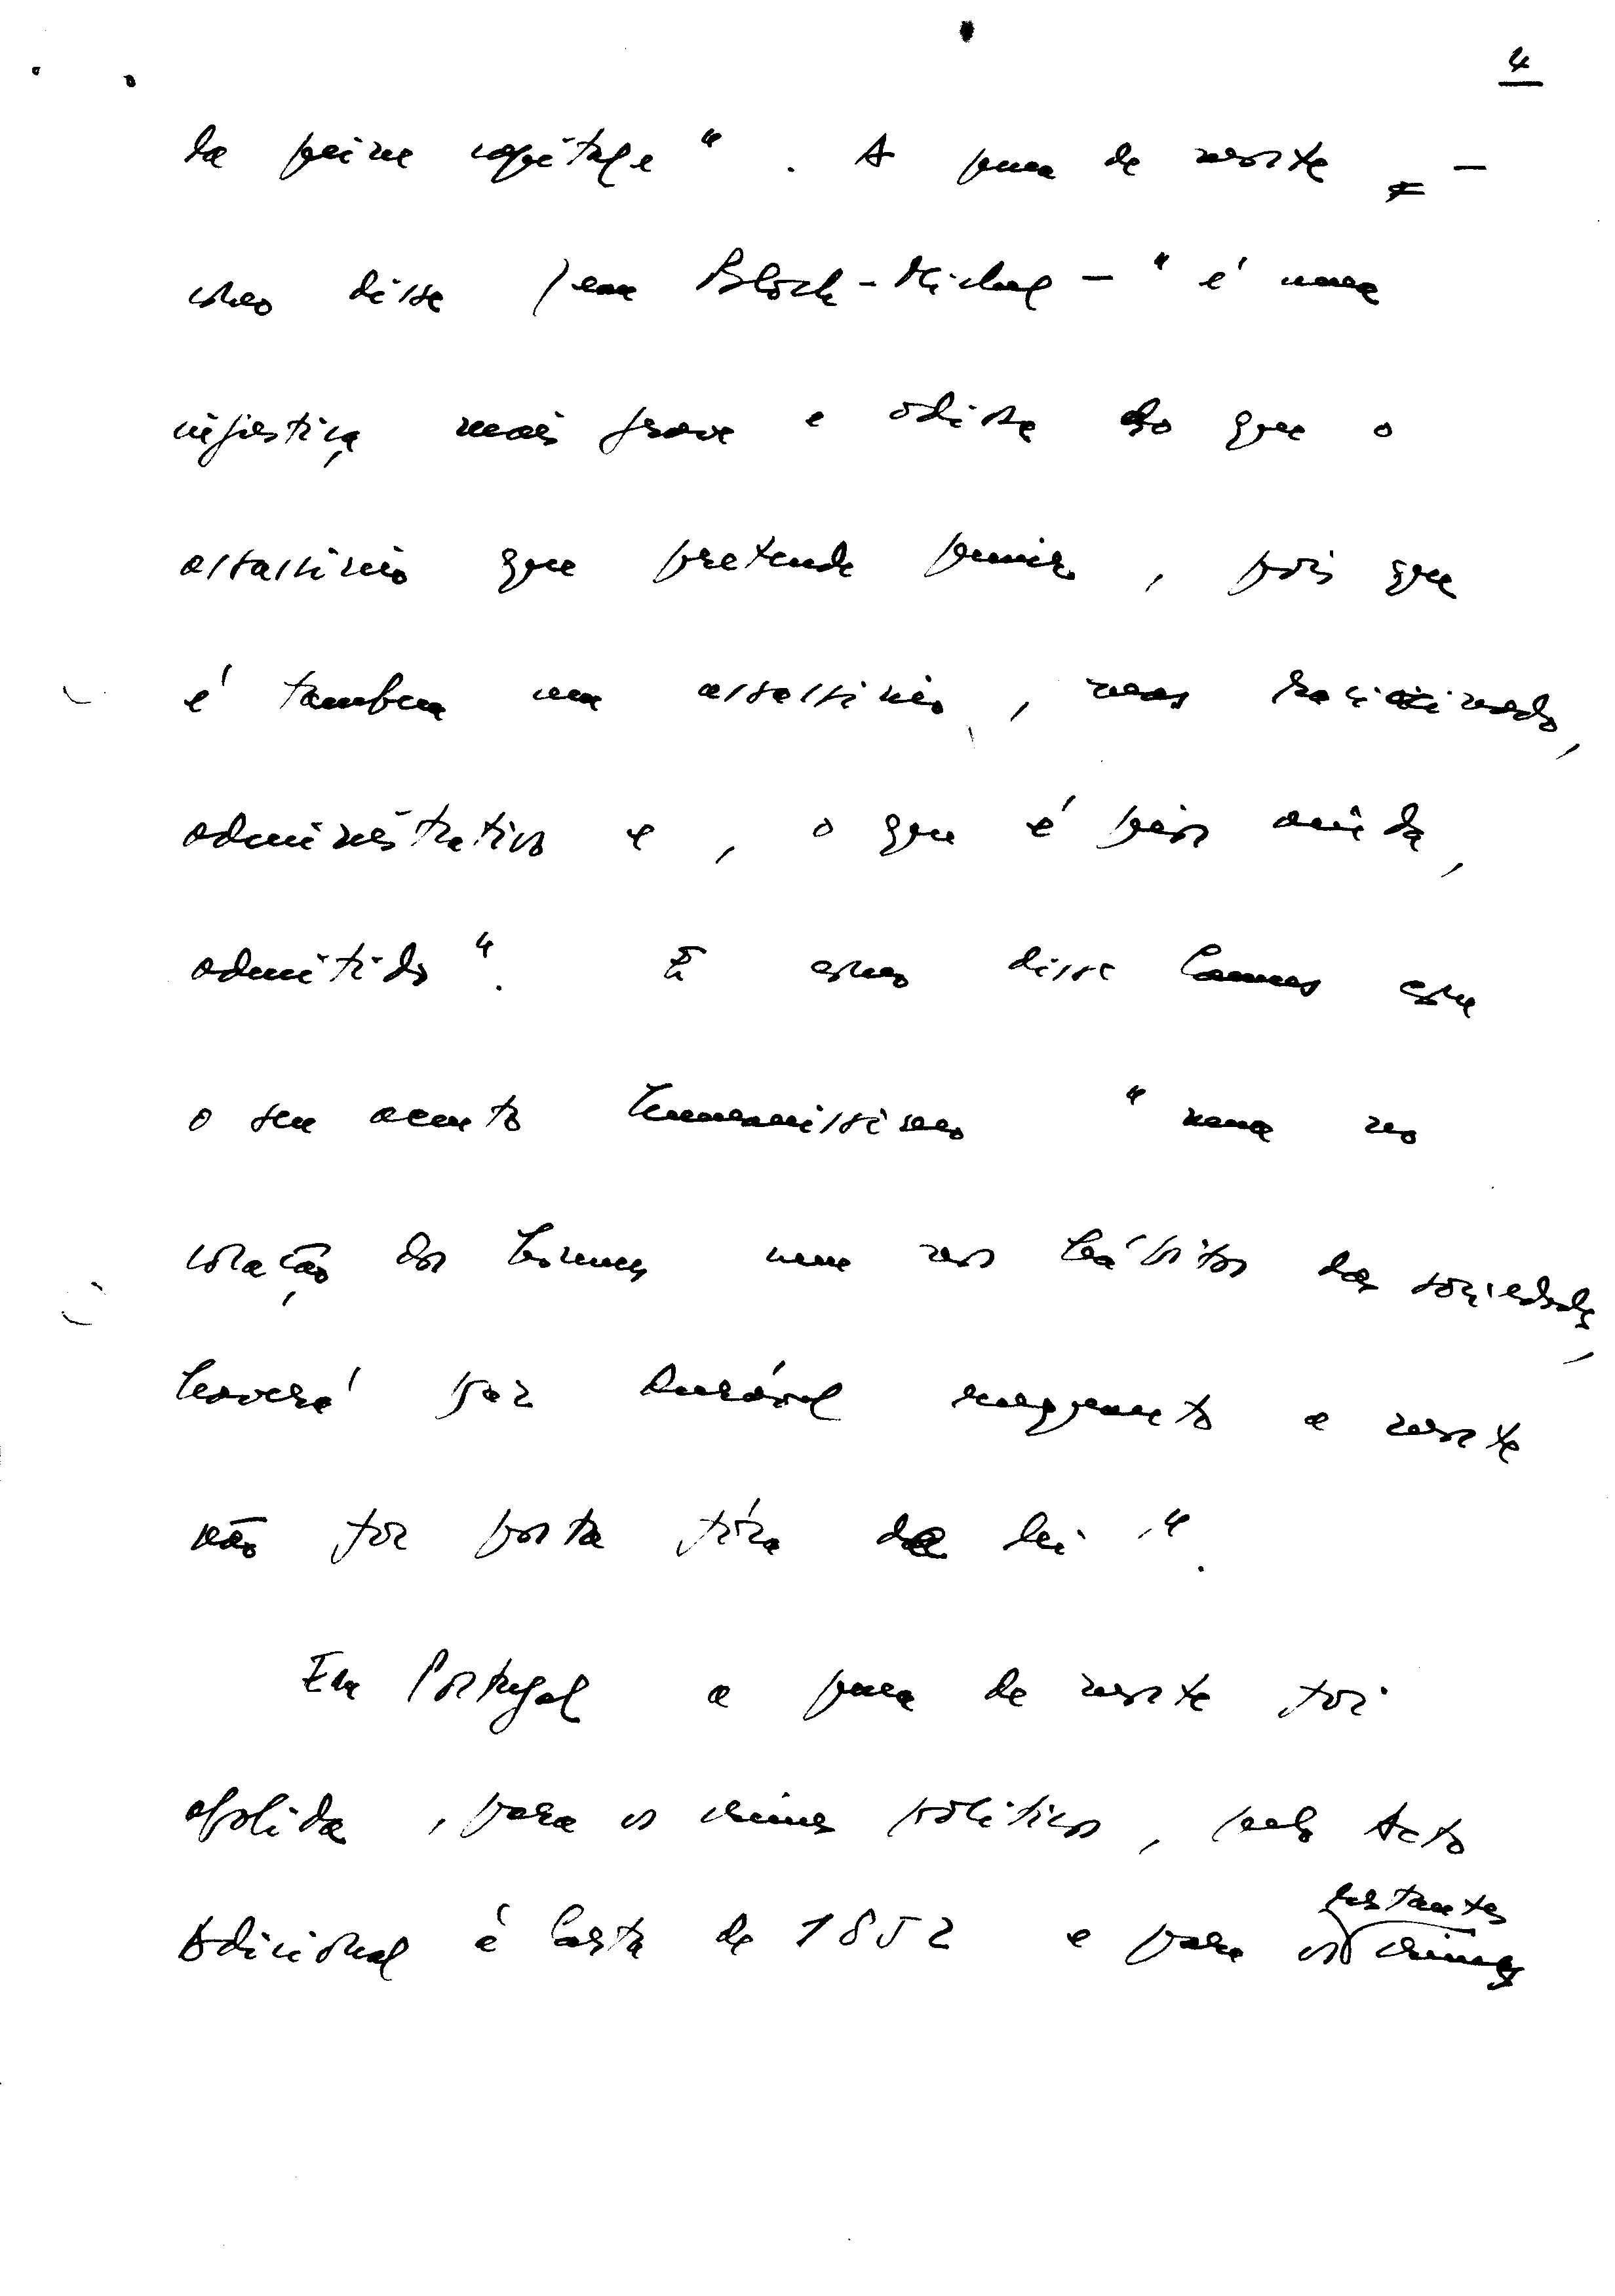 4
la peine capitale". A pena de morte, -
como disse Jean Bloch-Michel - "é uma
injustiça mais grave e odiosa do que o
assassínio que pretende punir, pois que
é tambem um assassínio, mas raciocinado,
administrativo e, o que é pior ainda,
admitido". E como disse Camus com
o seu acento humanissimo "nem no
coração dos homens nem nos hábitos das sociedades,
haverá paz durável enquanto a morte
não for posta fóra da lei".
Em Portugal a pena de morte foi
abolida, para os crimes politicos, pelo Acto
Adicional à Carta de 1852 e para os restantes crimes